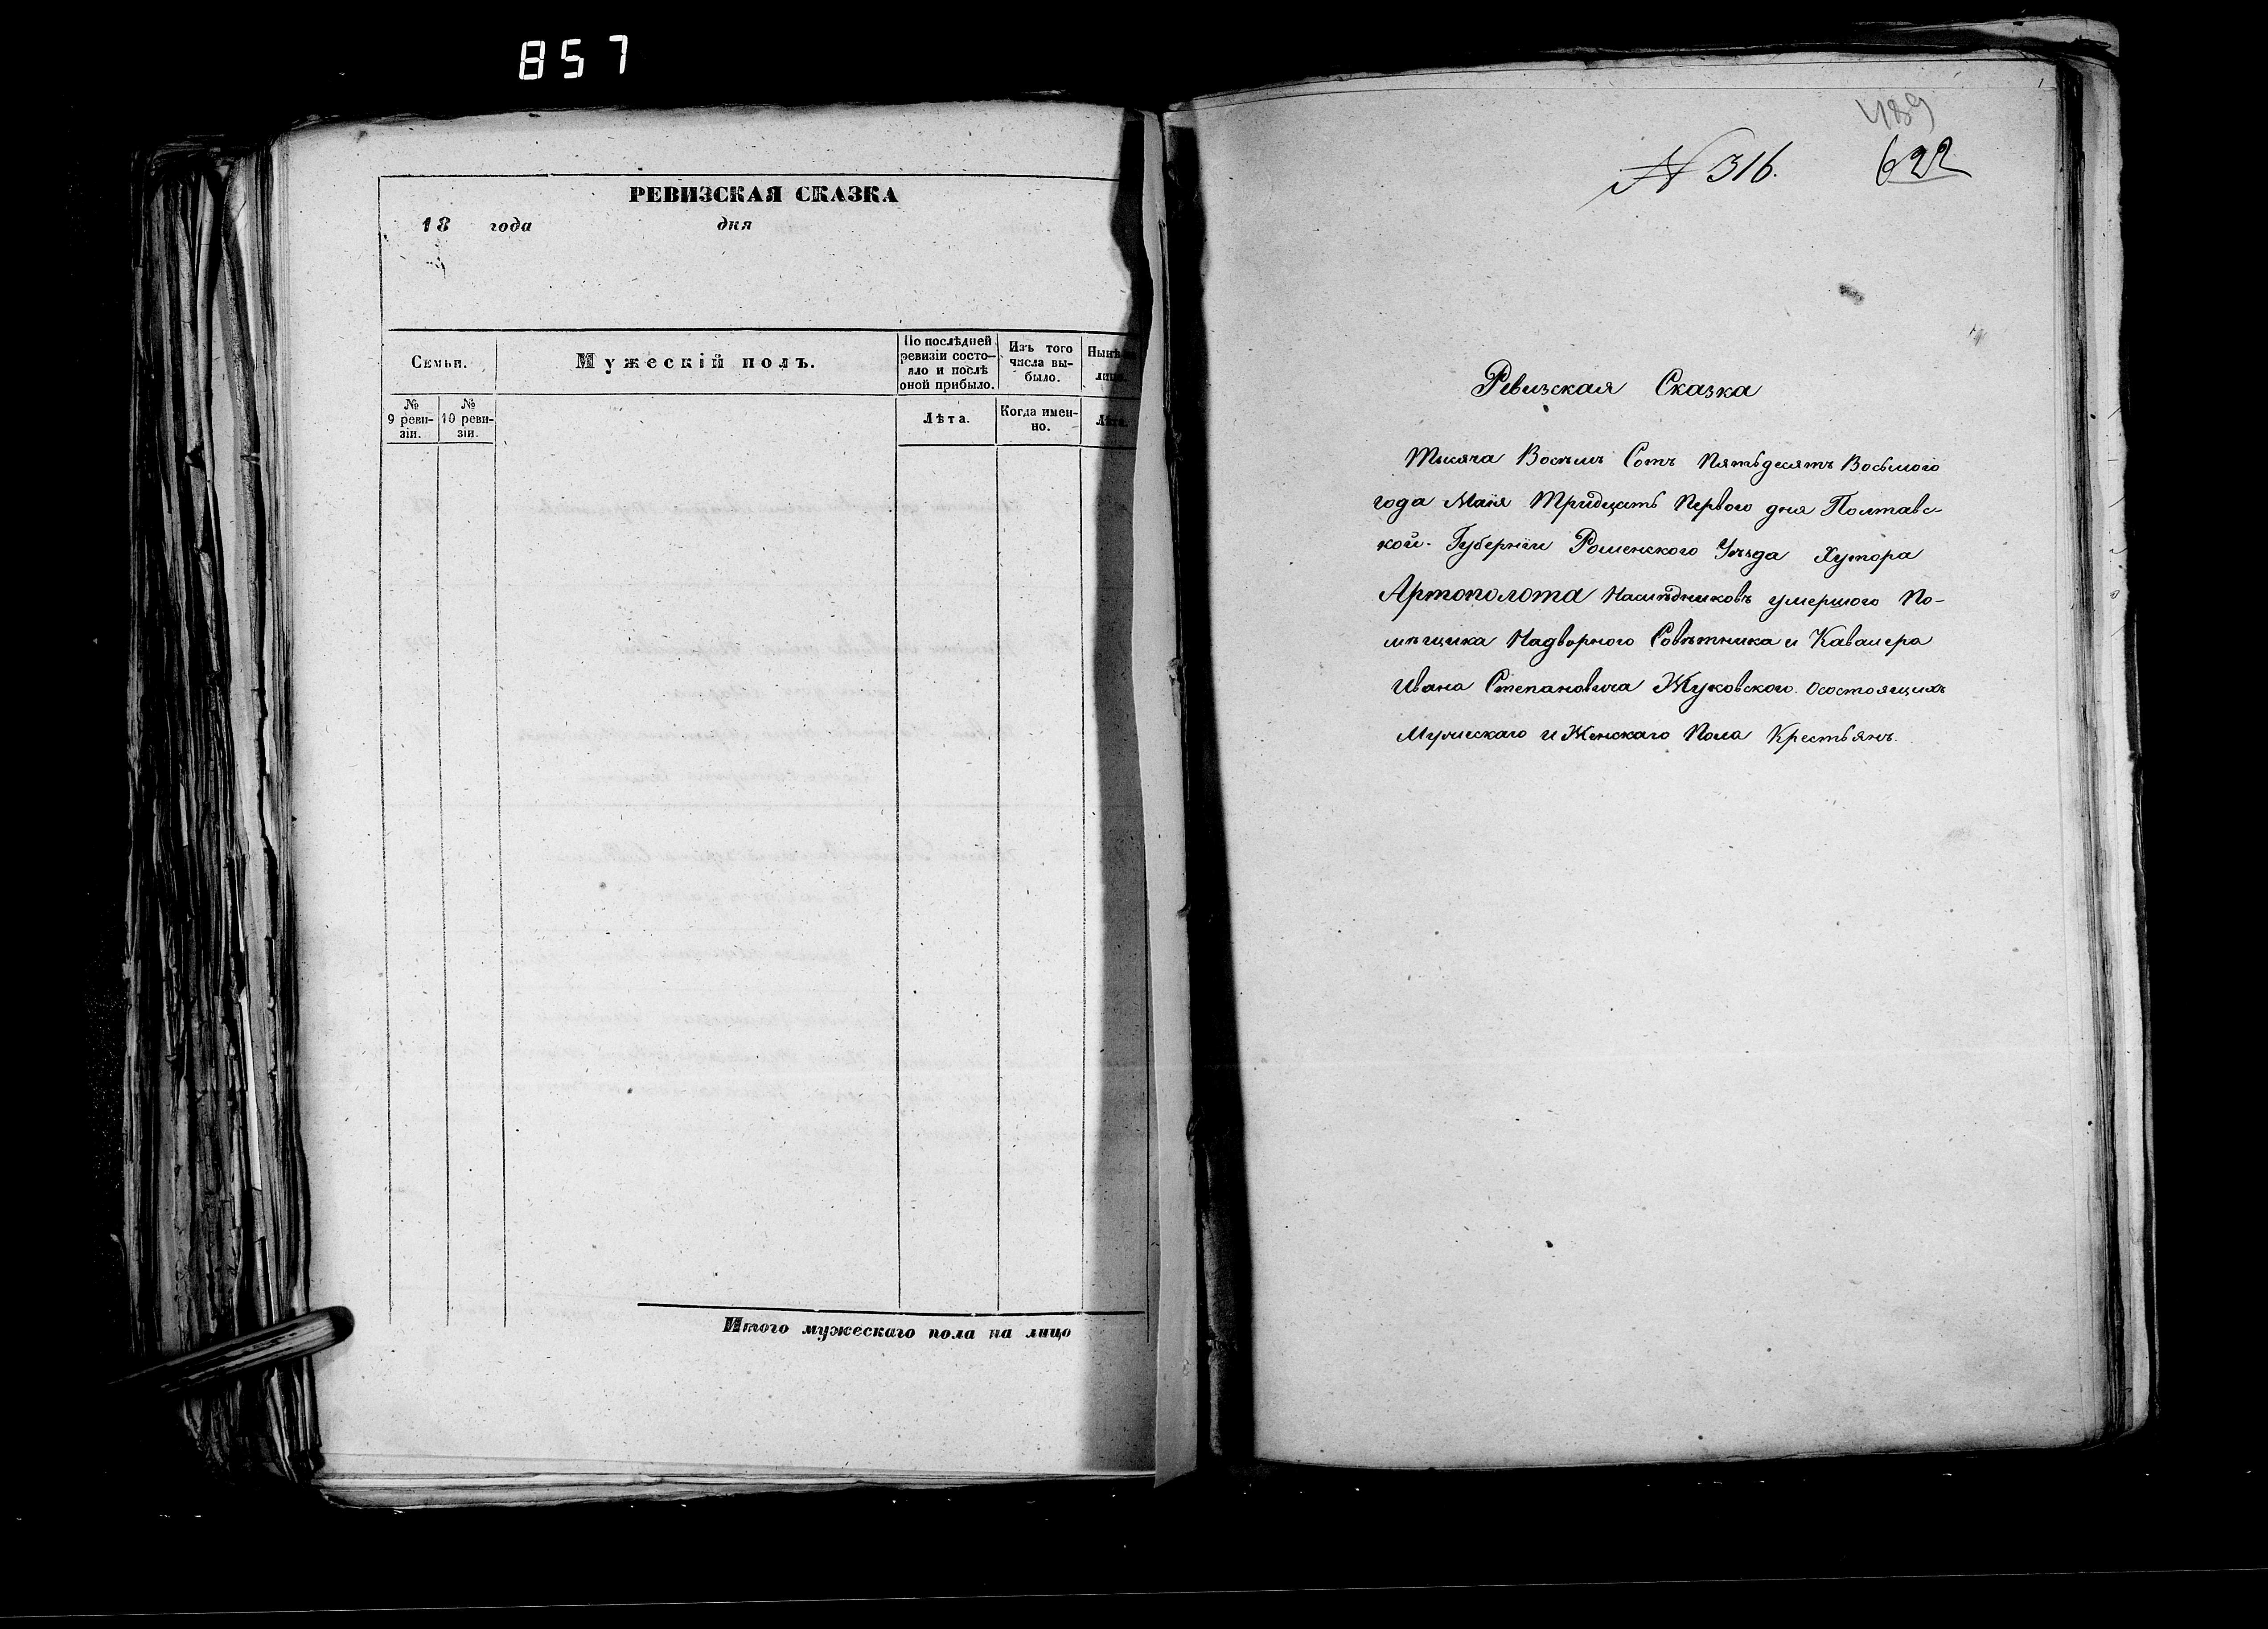 857
РЕВИЗСКАЯ СКАЗКА
18 года дня
Семьи.
Мужескій полъ.
По послѣдней
ревизіи состо-
яло и послѣ
оной прибыло.
Изъ того
числа вы-
было.
Нынѣ
лицо.
№
9 реви-
зіи.
№
10 реви-
зіи.
Лѣта.
Когда имен-
но.
Лѣта.
Итого мужескаго пола на лицо
489
N 316.
622
Ревизская Сказка
Тысяча Восемь Сотъ Пятьдесятъ Восьмого
года Маія Тридцать Первого дня Полтавс-
кой Губерніи Роменского Уѣзда Хутора
Артополота Наслѣдниковъ умершого По-
мѣщика Надворного Совѣтника и Кавалера
Ивана Степановича Жуковского. Осостоящихъ
Мужескаго и Женскаго Пола Крестьянъ.